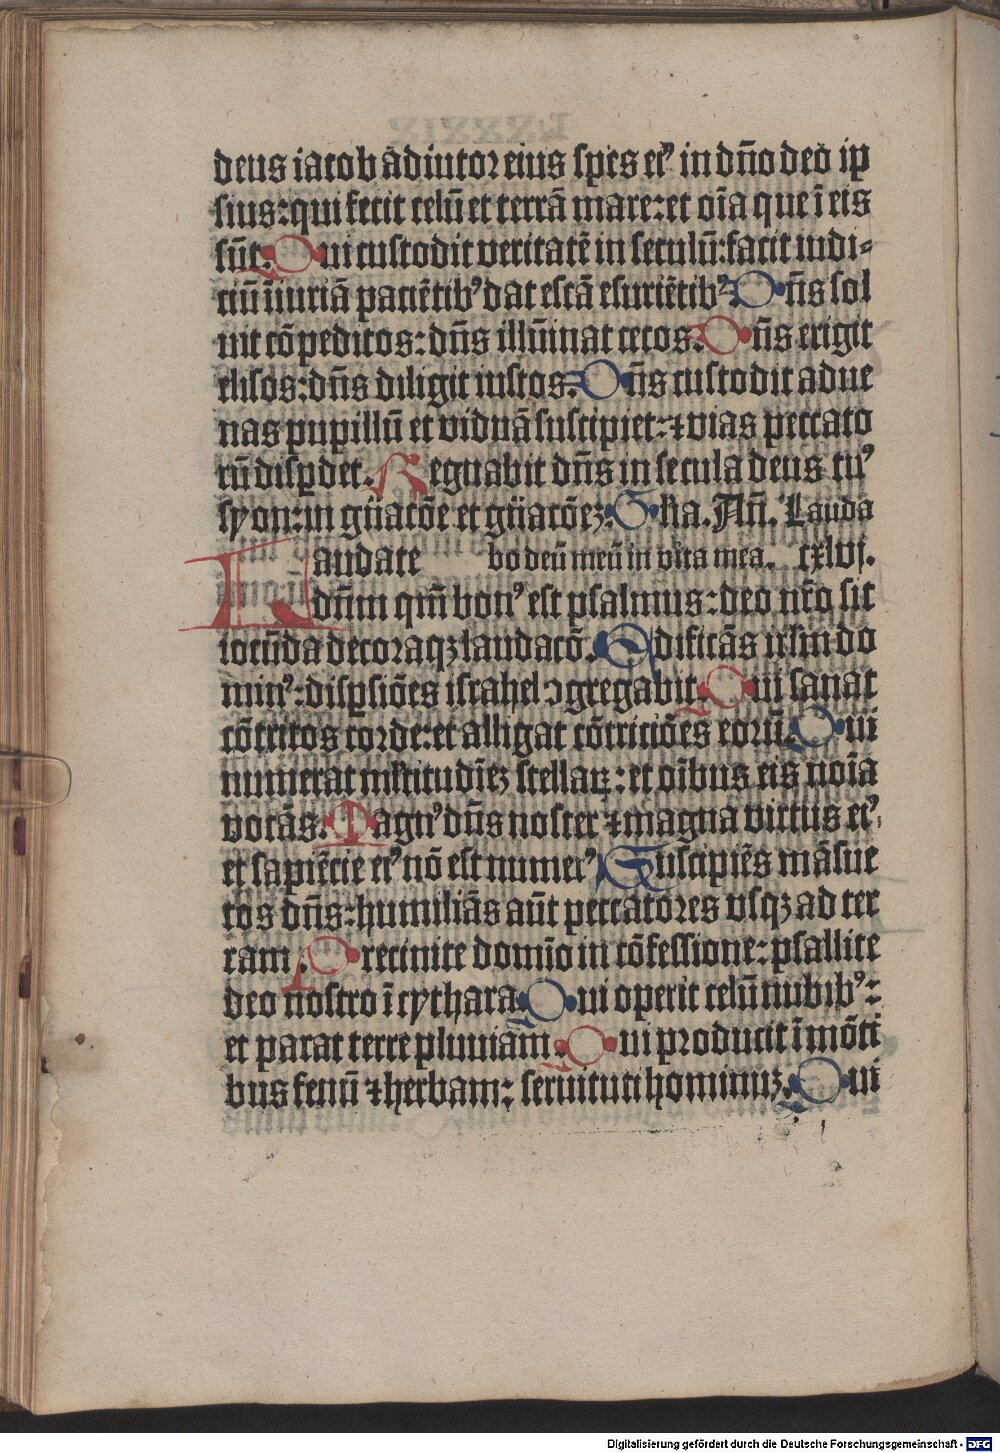 deus iacob adiutor eius spes eiꝰ in dño deo ip
sius: qui fecit celū et terrā mare: et oīa que ī eis
sūt. Qui custodit veritatē in seculū: facit iudi⸗
ciū iniuriā paciētibꝰ dat escā esuriētibꝰ Dñs sol
uit cōpeditos: dñs illūinat cecos. Dñs erigit
elisos: dñs diligit iustos. Dñs custodit adue
nas pupillū et viduā suscipiet: ⁊ vias peccato
rū disꝑdet. Regnabit dñs in secula deus tuꝰ
syon: in gn̄acōe et gn̄acōeꝫ. Gľia. Añ. Lauda
Laudate bo deū meū in vita mea. cxlvj.
dñm qm̄ bonꝰ est psalmus: deo nr̄o sit
iocūda decoraqꝫ laudacō. Edificās irlm̄ do
minꝰ: disꝑsiōes israhel ↄgregabit. Qui sanat
cōtritos corde: et alligat cōtriciōes eorū. Qui
numerat mľtitudīeꝫ stellaꝝ: et oībus eis noīa
vocās. Magnꝰ dñs noster ⁊ magna virtus eiꝰ.
et sapiēcie eiꝰ nō est numerꝰ Suscipiēs māsue
tos dñs: humiliās aūt peccatores vsqꝫ ad ter
ram. Precinite domīo in cōfessione: psallite
deo nostro ī cythara. Qui operit celū nubibꝰ:
et parat terre pluuiam. Qui producit ī mōti
bus fenū ⁊ herbam: seruituti hominuꝫ. Qui
LXXXIX
Digitalisierung gefördert durch die Deutsche Forschungsgemeinschaft - DFG